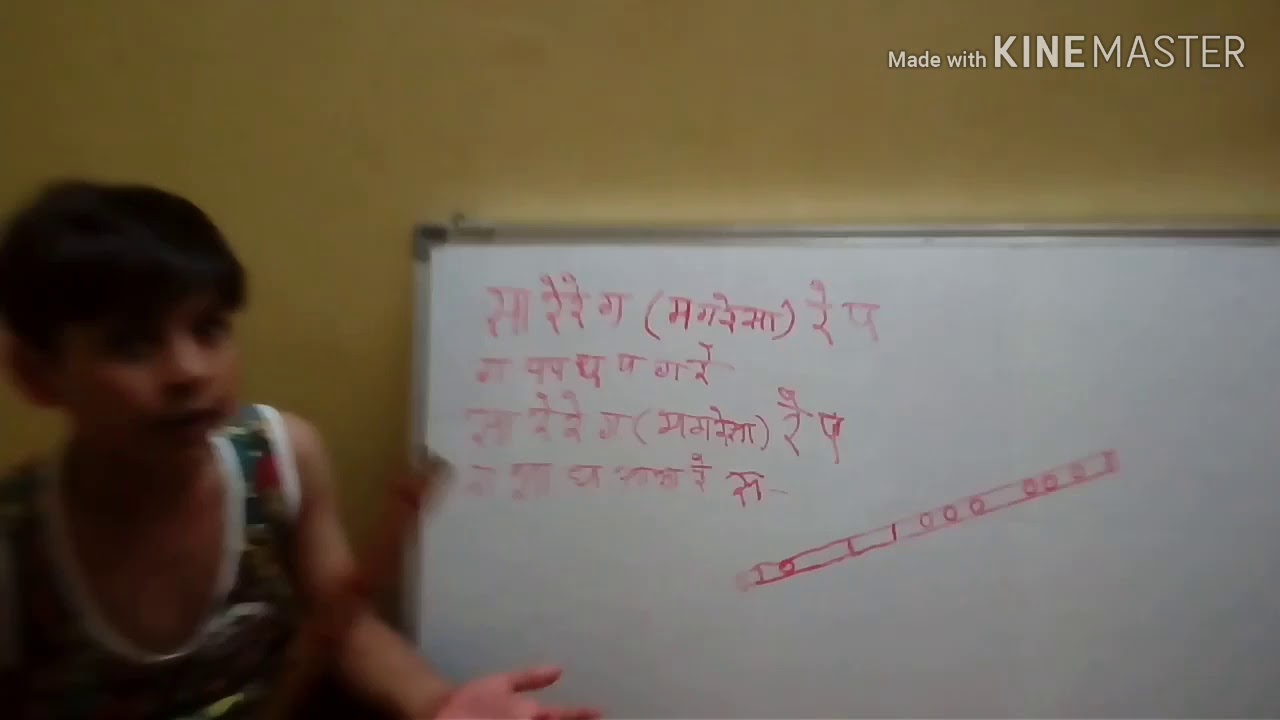 Made with KINEMASTER
सा रे रे ग (मगरेसा) रे प
ग पप ध प ग रे
सा रे रे ग (मगरेसा) रे प
ध रे स